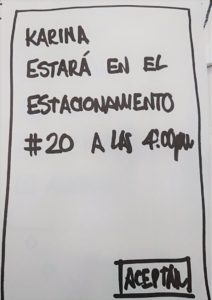 KARINA
ESTARÁ EN EL
ESTACIONAMIENTO
#20 A LAS 4:00pm
ACEPTAR